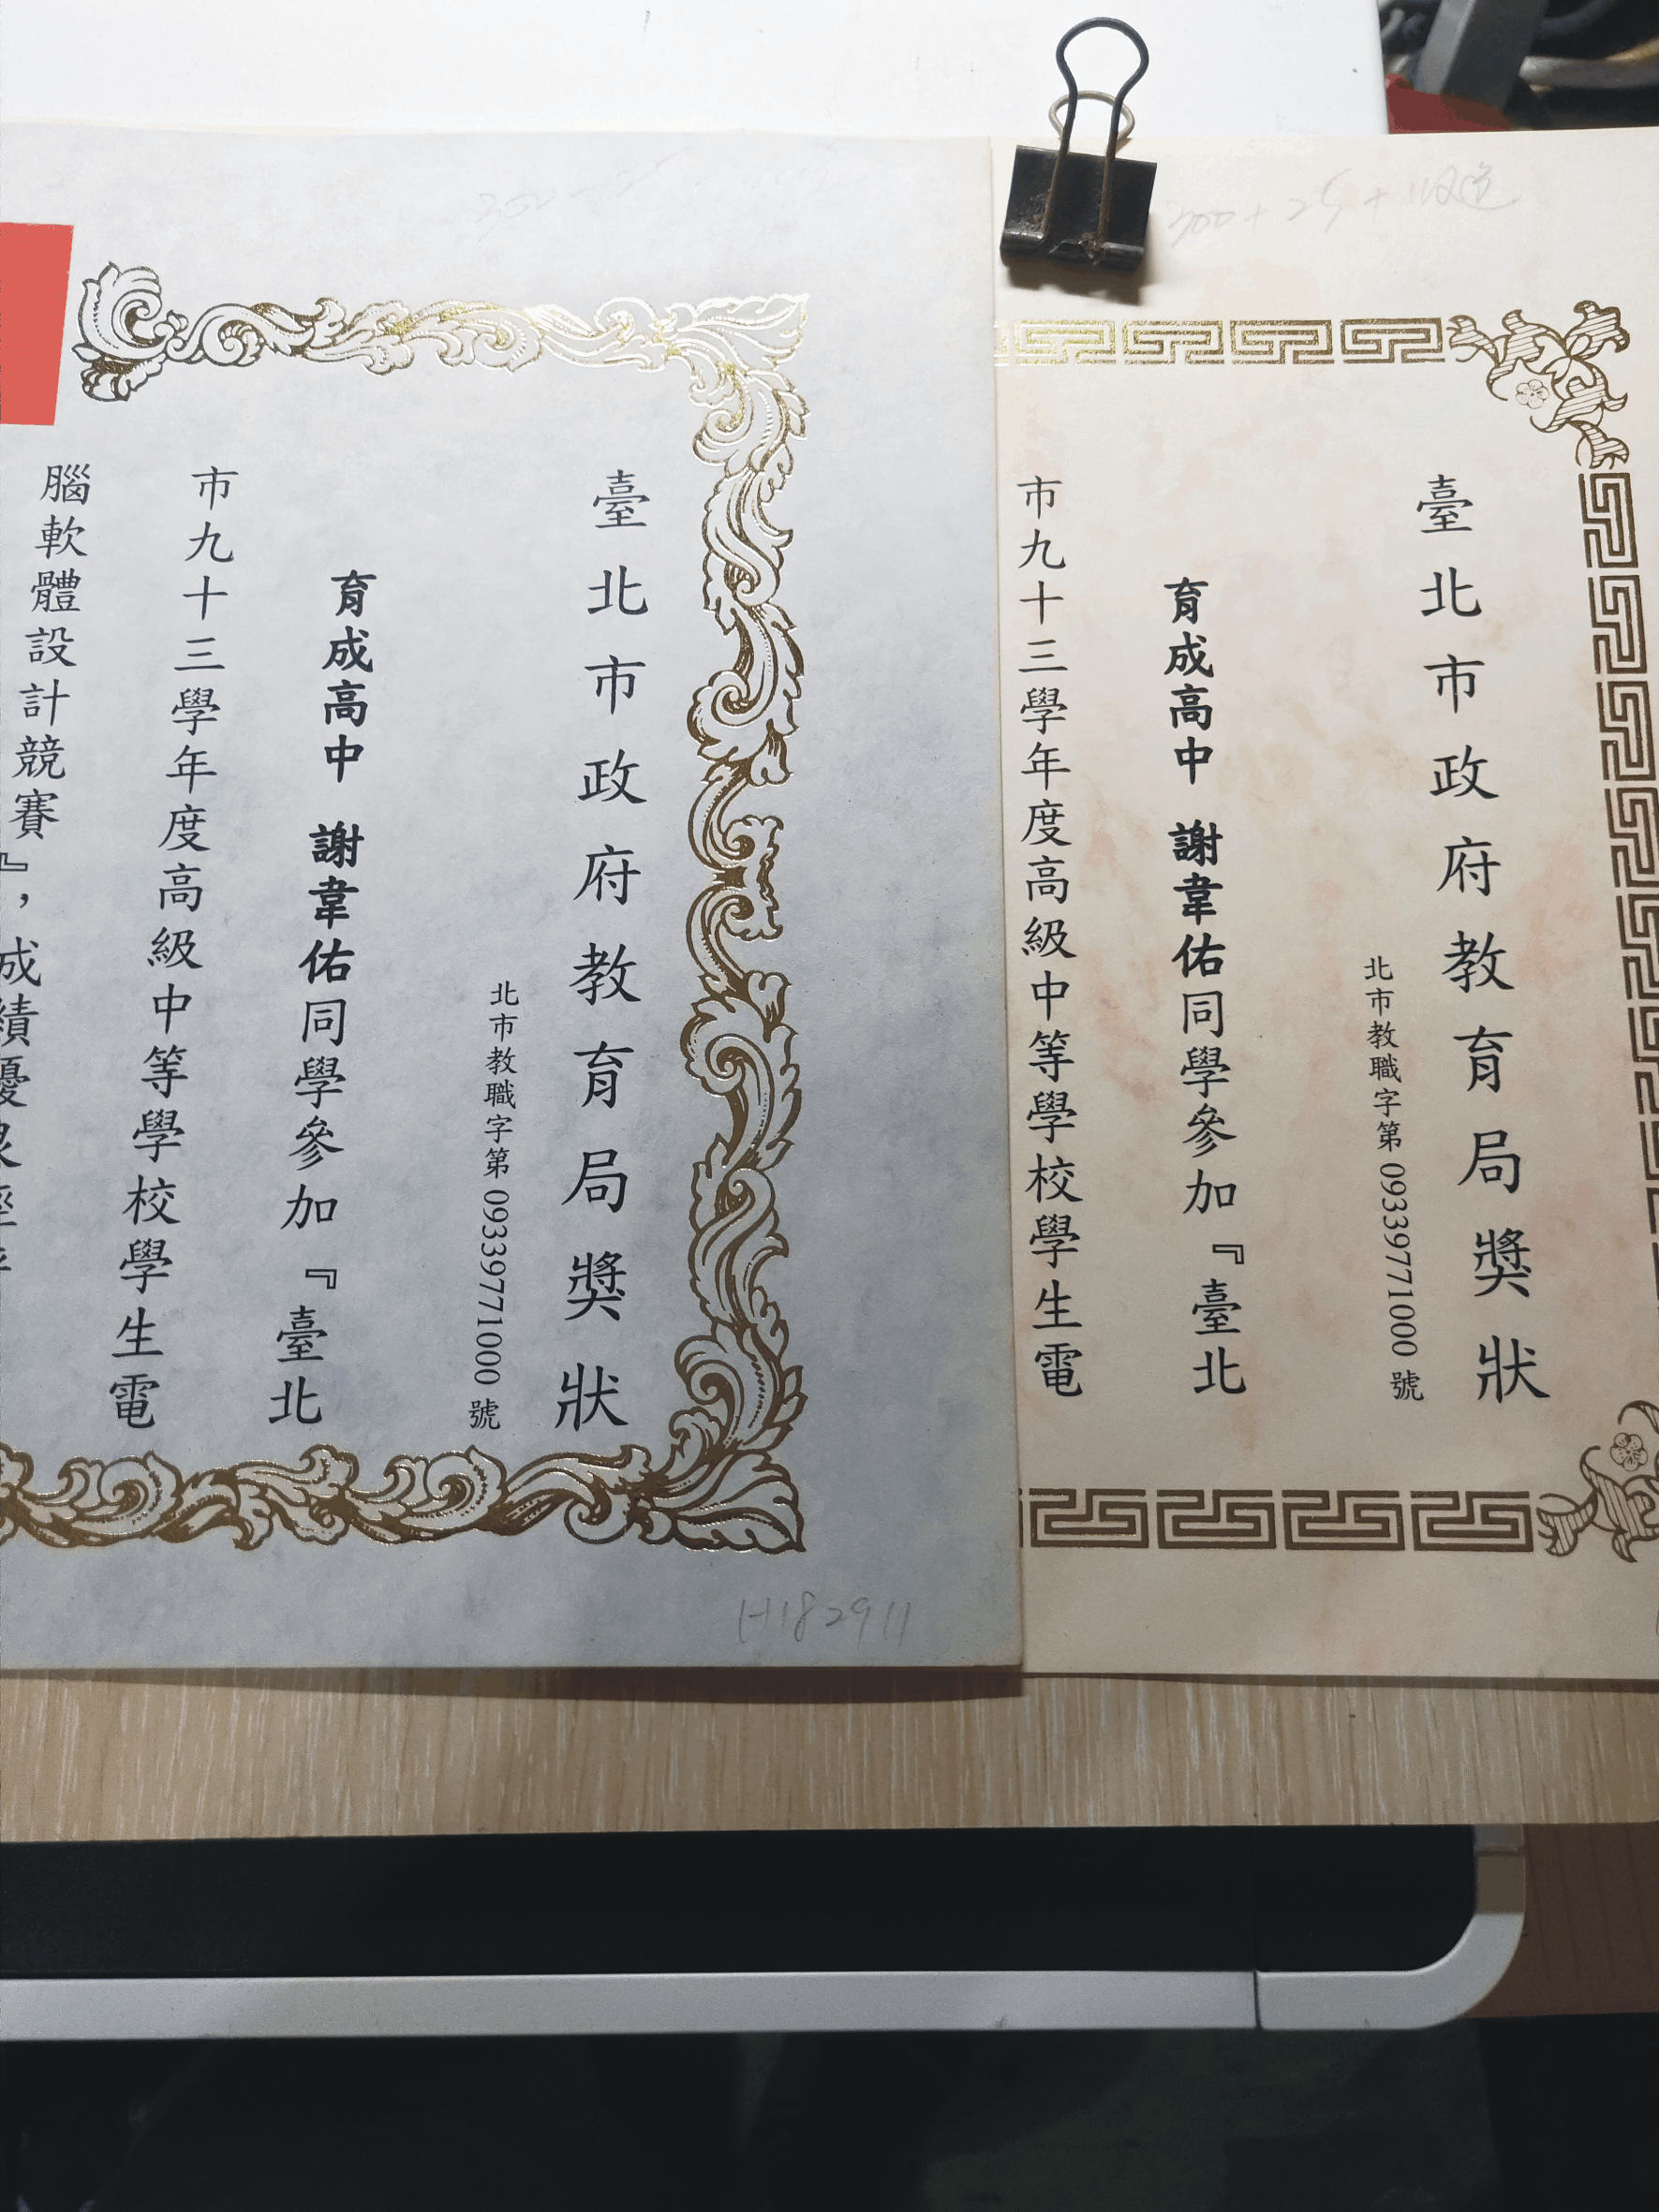 臺北市政府教育局獎狀
北市教職字第09339771000號
育成高中 謝韋佑同學參加『臺北
市九十三學年度高級中等學校學生電
臺北市政府教育局獎狀
北市教職字第09339771000號
育成高中 謝韋佑同學參加『臺北
市九十三學年度高級中等學校學生電
腦軟體設計競賽』，成績優良
300+25+
H182911